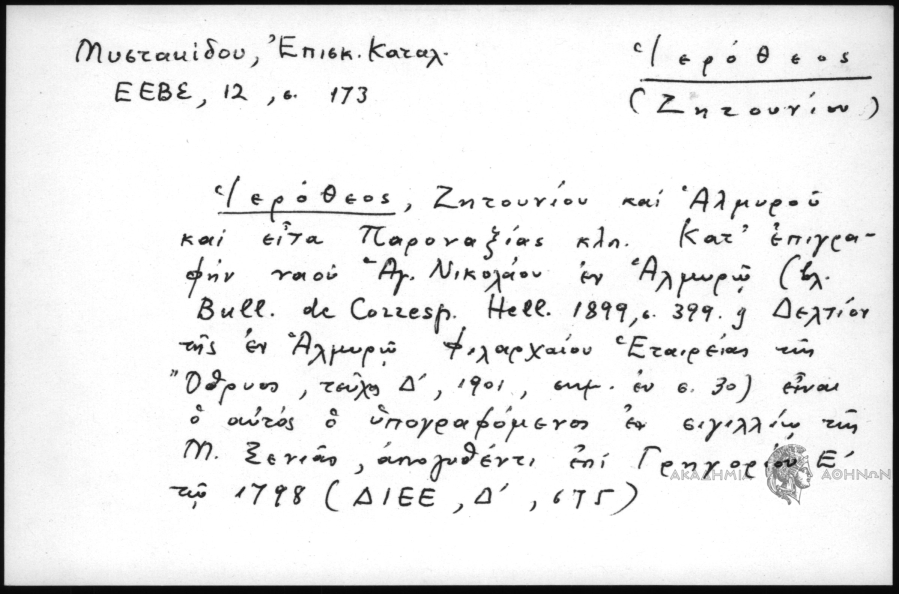 Μυστακίδου, Ἐπισκ. Καταλ.
ΕΕΒΣ, 12, σ. 173
Ἱερόθεος
(Ζητουνίου)
Ἱερόθεος, Ζητουνίου καί Ἁλμυροῦ
καί εἶτα Παροναξίας κλπ. Κατ' ἐπιγρα-
φήν ναοῦ Ἁγ. Νικολάου ἐν Ἁλμυρῷ (βλ.
Bull. de Corresp. Hell. 1899, σ. 399. ϗ Δελτίον
τῆς ἐν Ἁλμυρῷ Φιλαρχαίου Ἑταιρείας τῆς
"Ὄθρυος, τεῦχος Δ', 1901, σημ. ἐν σ. 30) εἶναι
ὁ αὐτός ὁ ὑπογραφόμενος ἐν σιγιλλίῳ τῆς
Μ. Ξενιᾶς, ἀπολυθέντι ἐπί Γρηγορίου Ε'
τῷ 1798 (ΔΙΕΕ, Δ', 675)
ΑΚΑΔΗΜΙΑ ΑΘΗΝΩΝ